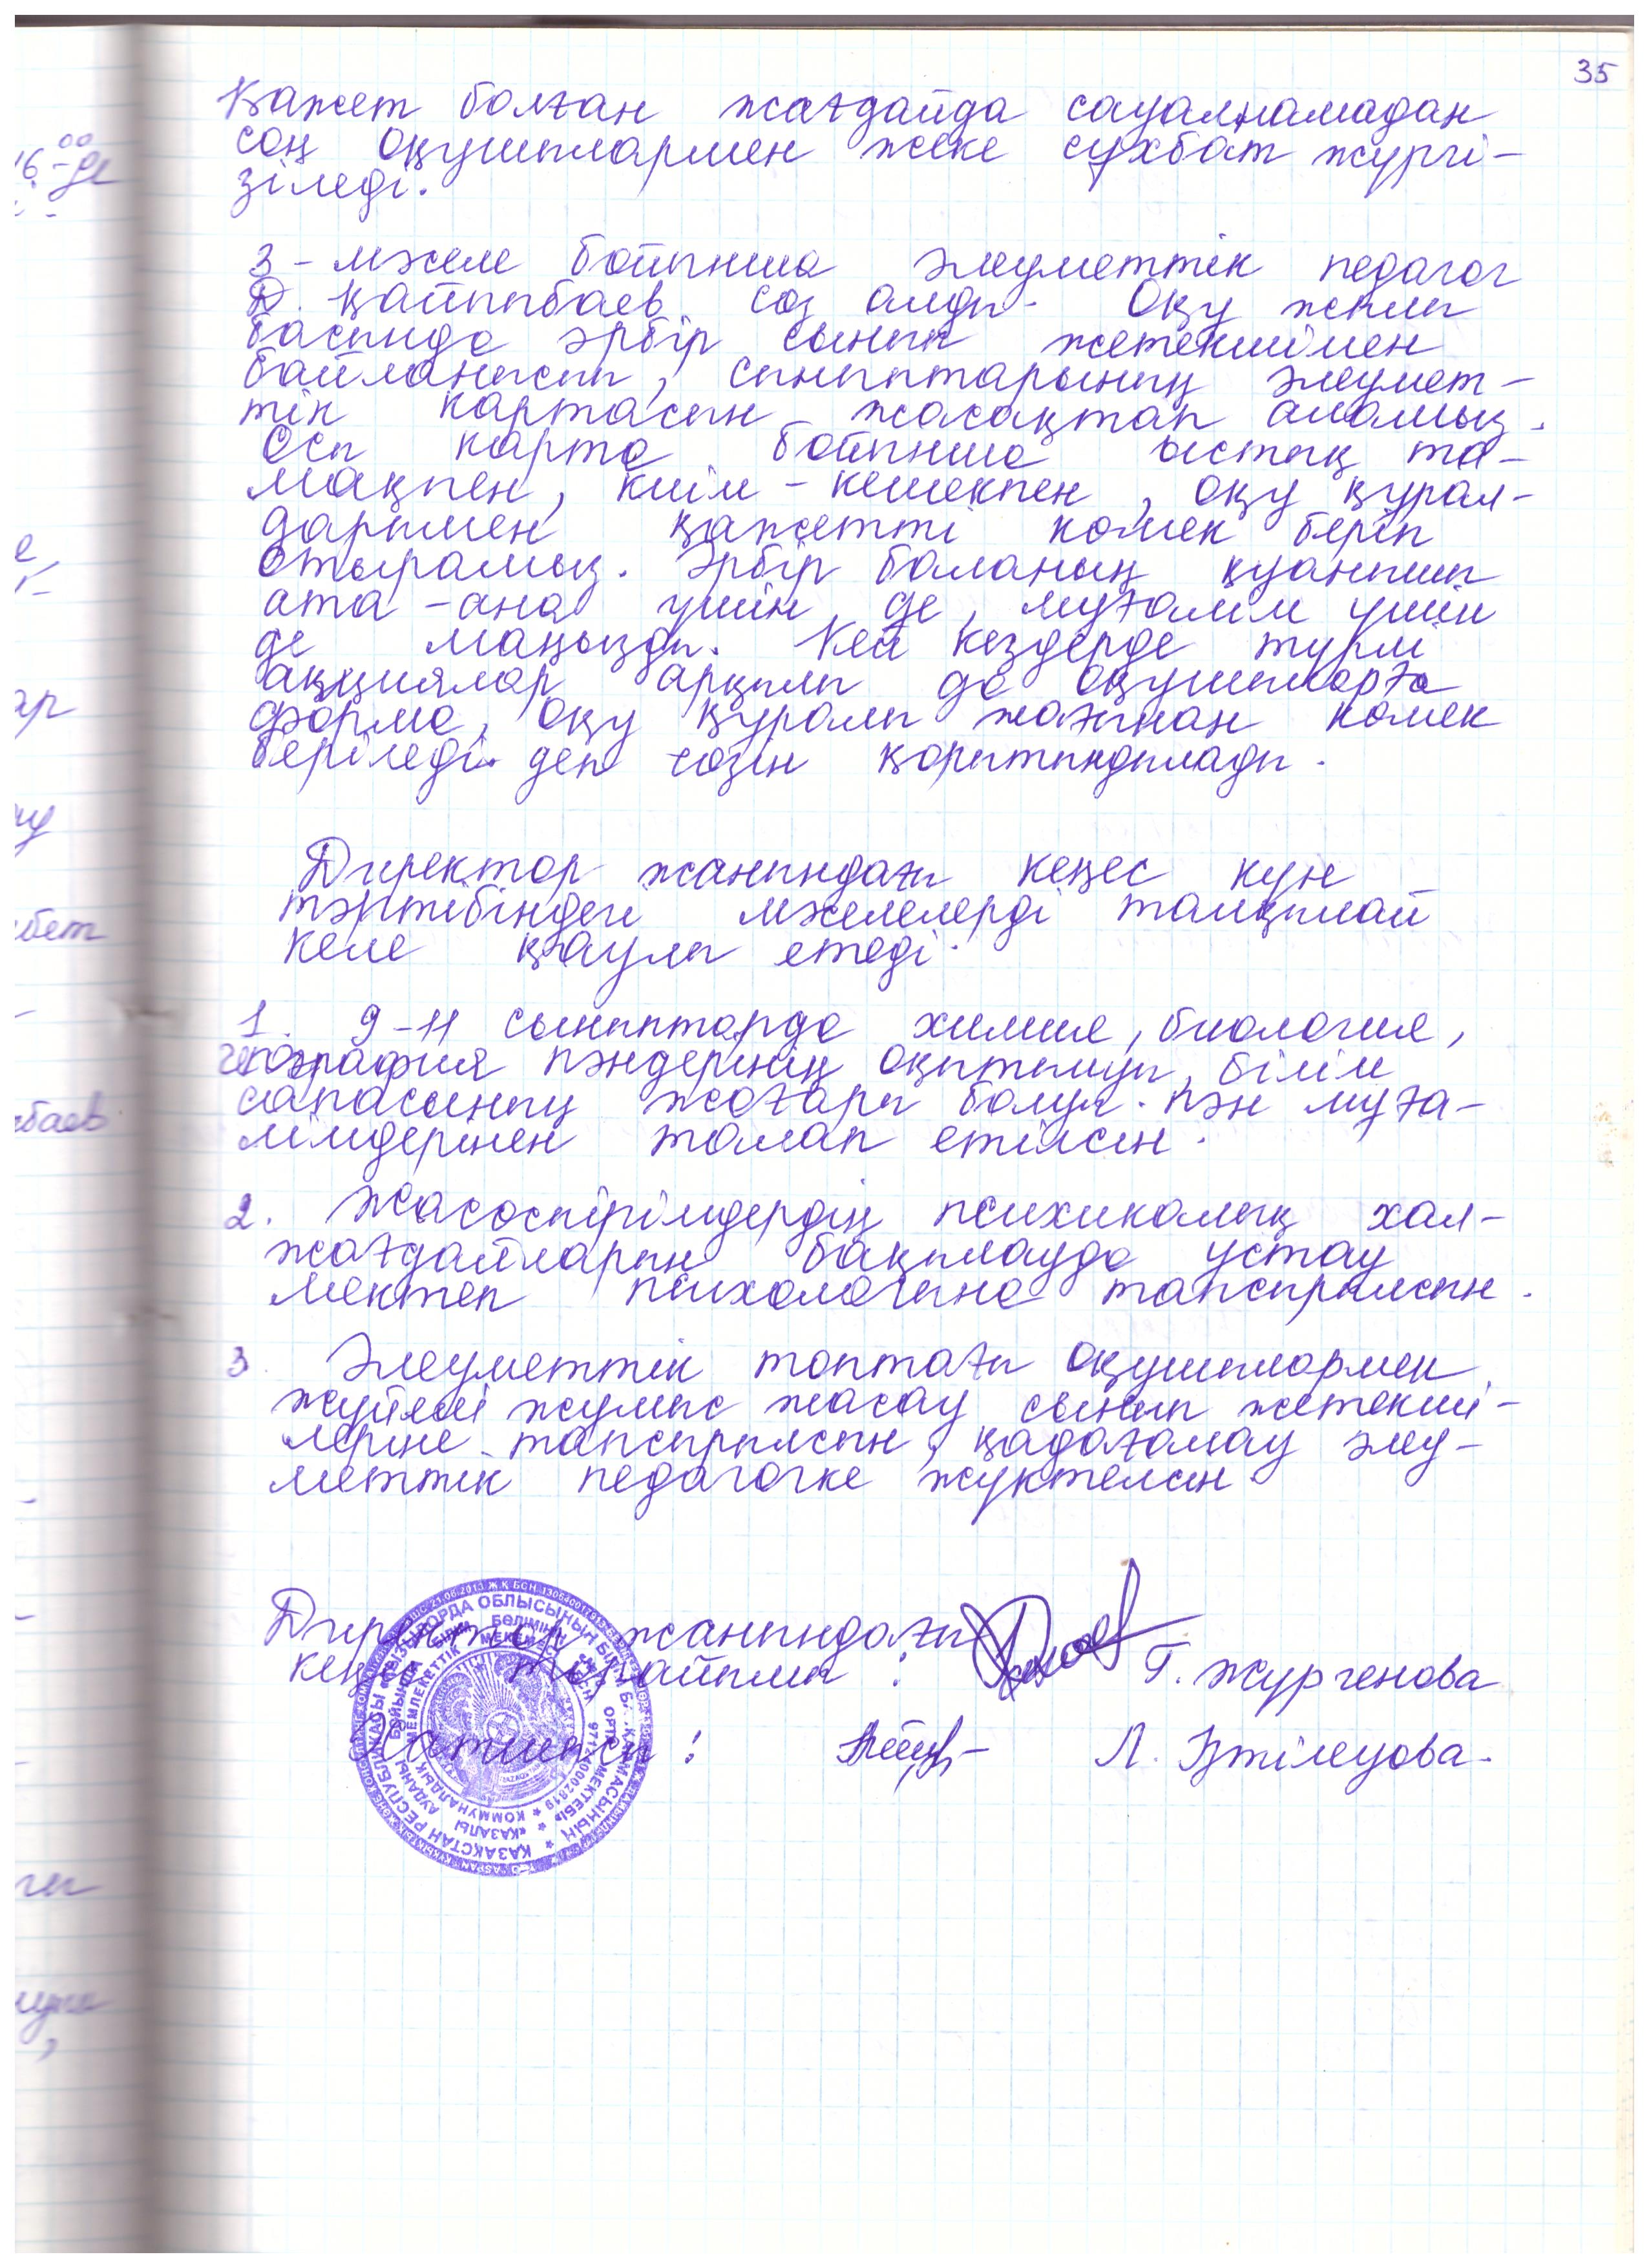 35
Қажет болған жағдайда сауалнамадан
соң оқушылармен жеке сұхбат жүргі-
зіледі.
3 - мәселе бойынша әлеуметтік педагог
Д. Қайыпбаев сөз алды. Оқу жылы
басында әрбір сынып жетекшімен
байланысып, сыныптарының әлеумет-
тік картасын жасақтап аламыз.
Осы карта бойынша ыстық та-
мақпен, киім - кешекпен, оқу құрал-
дарымен қажетті көмек беріп
отырамыз. Әрбір баланың қуанышы
ата - ана үшін де, мұғалім үшін
де маңызды. Кей кездерде түрлі
акциялар арқылы да оқушыларға
форма, оқу құралы жағынан көмек
беріледі. деп сөзін қорытындылады.
Директор жанындағы кеңес күн
тәртібіндегі мәселелерді талқылай
келе қаулы етеді.
1. 9-11 сыныптарда химия, биология,
география пәндерінің оқытылуы, білім
сапасының жоғары болуы. пән мұға-
лімдерінен талап етілсін.
2. Жасөспірімдердің психикалық хал-
жағдайларын бақылауда ұстау
мектеп психологына тапсырылсын.
3 Әлеуметтік топтағы оқушылармен
жүйелі жұмыс жасау сынып жетекші-
леріне тапсырылсын, қадағалау әлеу-
меттік педагогке жүктелсін
Директор жанындағы
кеңес төрайымы : Г. Жургенова
Хатшысы : Л. Өтілеуова.
ҚАЗАҚСТАН РЕСПУБЛИКАСЫ ҚЫЗЫЛОРДА ОБЛЫСЫНЫҢ БІЛІМ БАСҚАРМАСЫНЫҢ